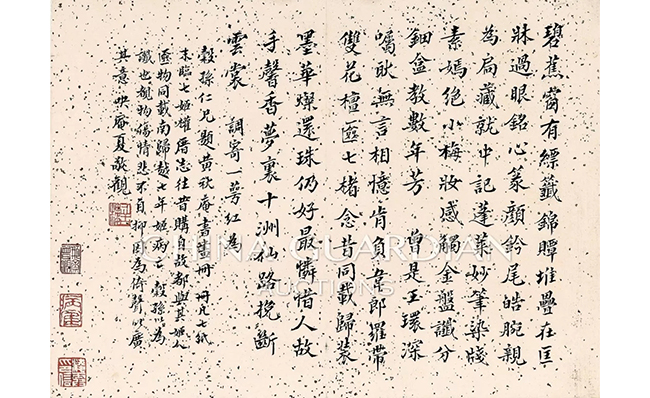 碧蕉窗有縹籤錦贉堆疊在匡
牀過眼銘心篆顏鈐尾皓腕親
為扃藏就中記蓬萊妙筆染牋
素嫣絕小梅妝感觸金盤讖分
鈿盒教數年芳 曾是玉環深
囑耿無言相憶肯負吾郎羅帶
雙花檀匣七楮念昔同載歸裝
墨華燦還珠仍好最憐惜人故
手馨香夢裏十洲仙路挽斷
雲裳 調寄一萼紅為
縠孫仁兄題黃秋庵書畫冊 冊凡七紙
末臨七姬權厝志往昔購自故都與其姬人
物同載南歸越七年姬病亡縠孫以為
讖也觀物傷情悲不自抑因為倚聲以廣
其意 映庵夏敬觀
CHINA GUARDIAN
AUCTIONS